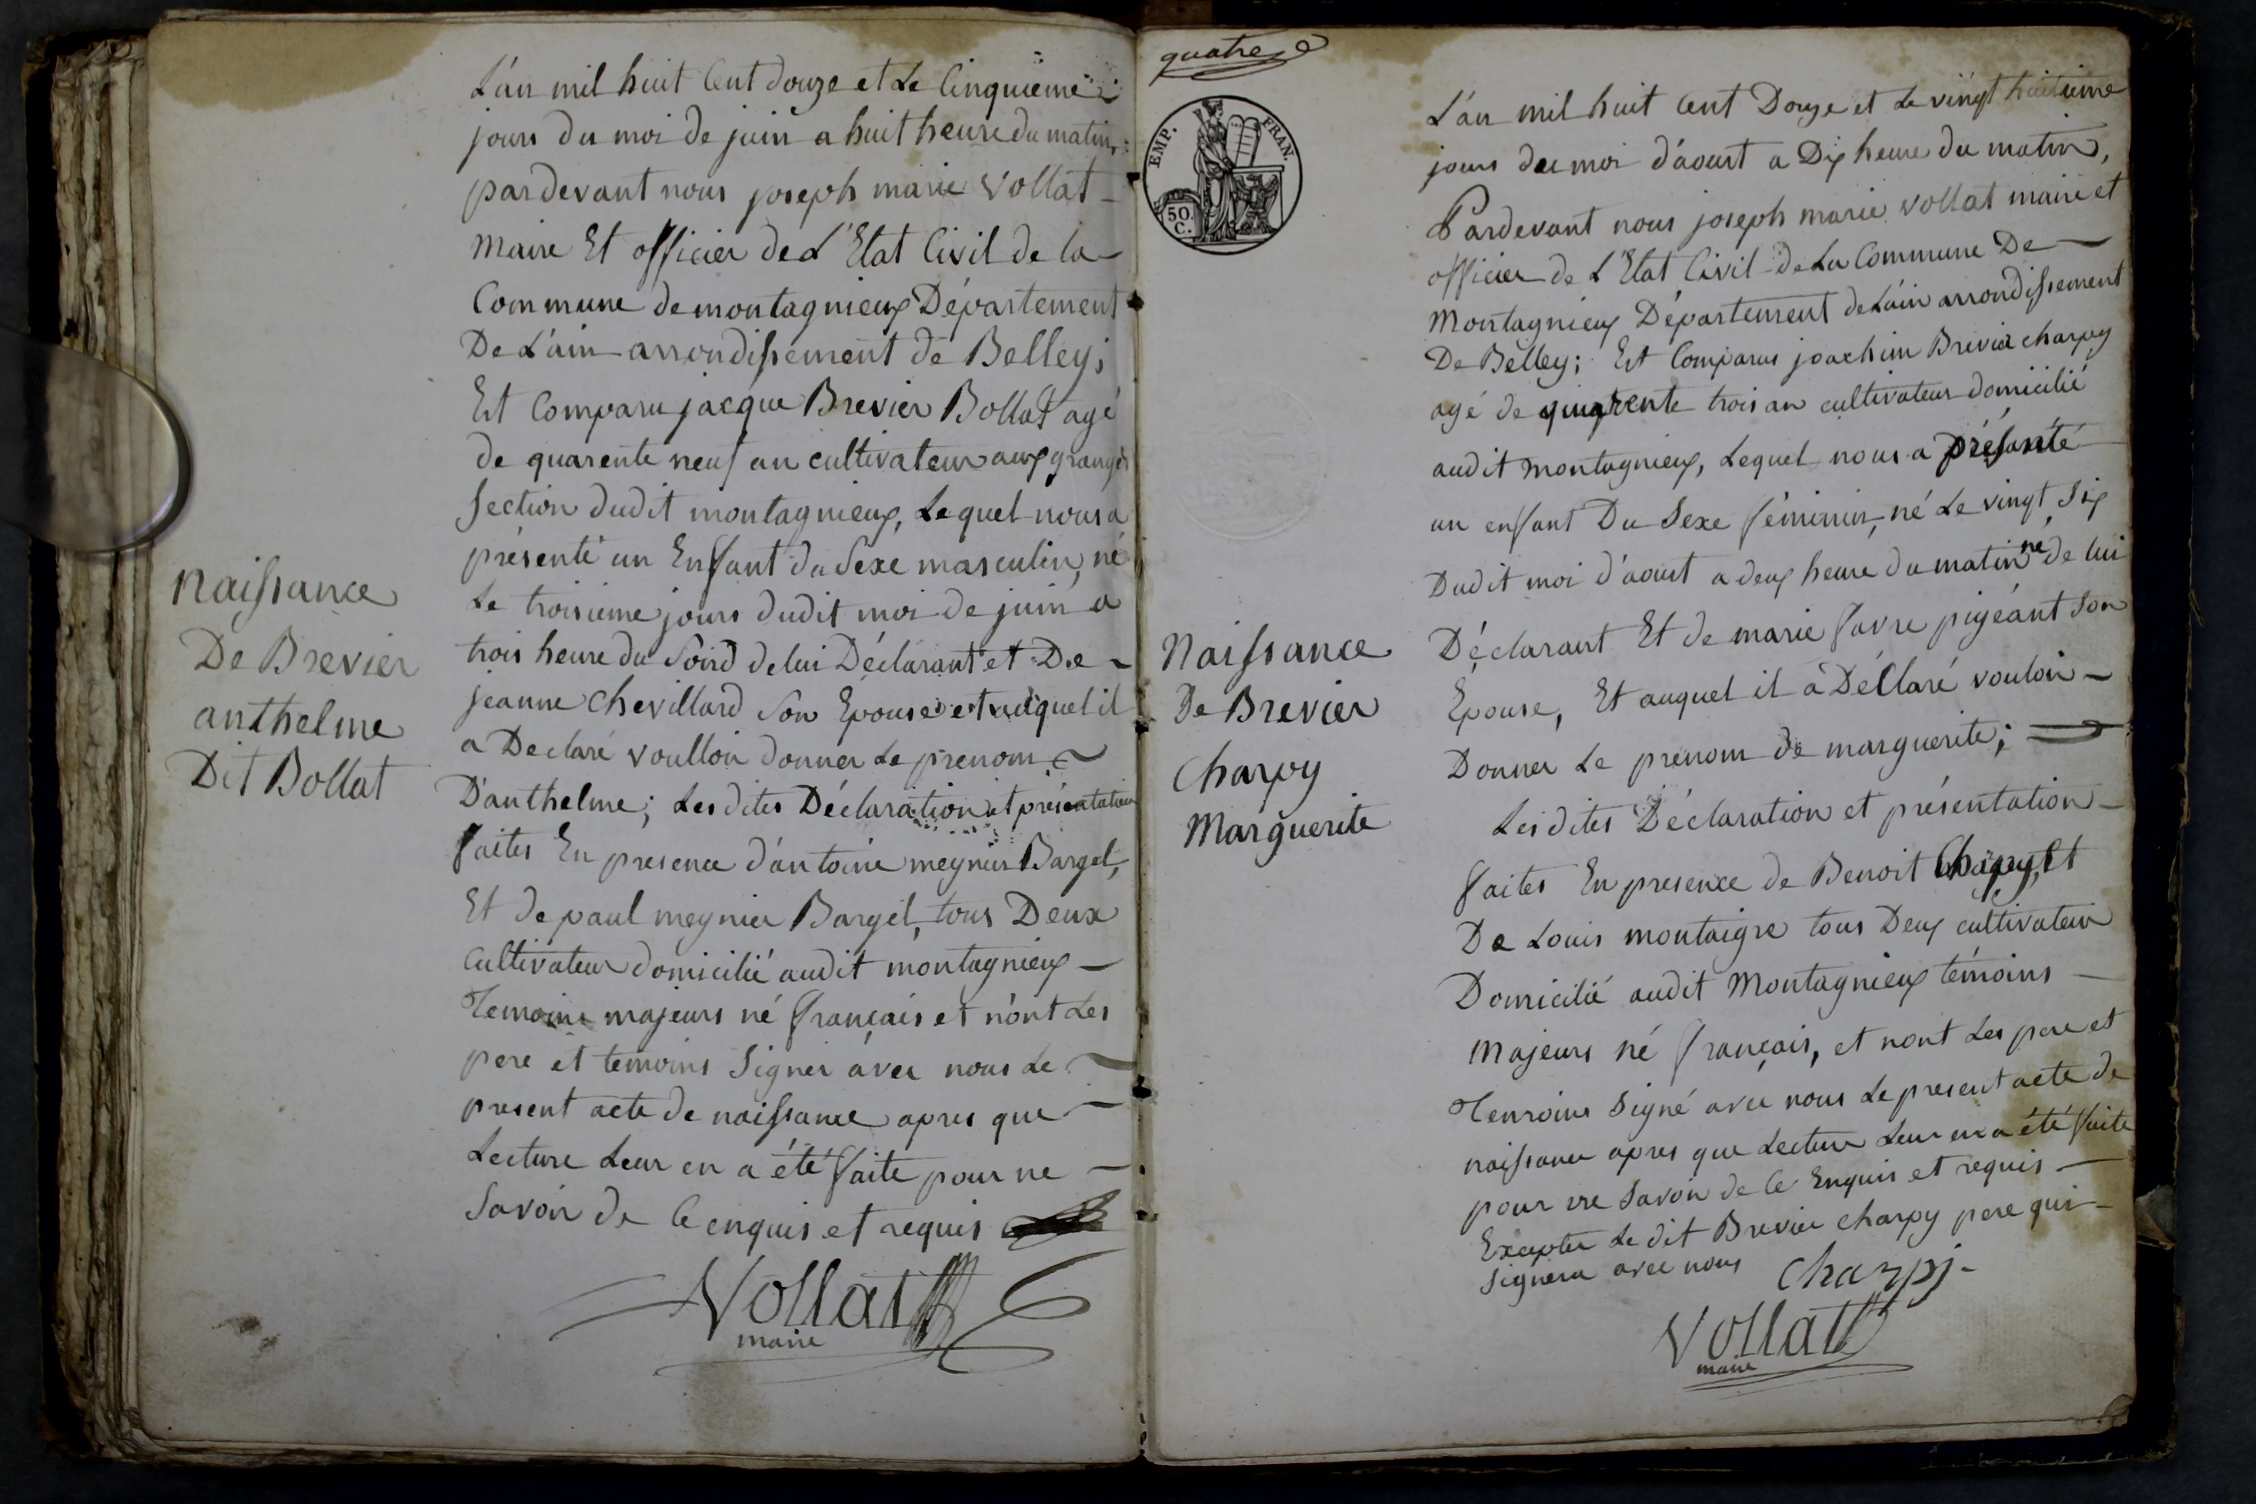 L'an mil huit Cent douze et Le Cinquieme
jours du moi de juin a huit heure du matin,
pardevant nous joseph marie Vollat
Maire Et officier de L'Etat Civil de la
Commune de montagnieux Département
De L'ain arrondissement de Belley;
Est Comparu jacque Brevier Bollat agé
de quarente neuf an cultivateur aux granges
Section dudit montagnieux, Lequel nous a
présenté un Enfant du Sexe masculin, né
Le troisieme jours dudit moi de juin a
trois heure du Soird de lui Déclarant et De
jeanne Chevillard Son Epouse et auquel il
a Declaré voulloir donner Le prenom
D'anthelme; Les dites Déclaration et présentation
faites En presence d'antoine meynier Bargel,
Et de paul meynier Bargel, tous Deux
Cultivateur domicilié audit montagnieux
Temoins majeurs né français et n'ont Les
pere et temoins Signer avec nous Le
present acte de naissance apres que
Lecture Leur en a été faite pour ne
Savoir de Ce enquis et requis
Vollat
maire
Naissance
De Brevier
anthelme
Dit Bollat
quatre
EMP. FRAN.
50.
C.
L'an mil huit Cent Douze et Le vingt huitieme
jours du moi d'aoust a Dix heure du matin,
Pardevant nous joseph marie vollat maire et
officier de L'Etat Civil de La Commune De
Montagnieux Département de L'ain arrondissement
De Belley; Est Comparus joachim Brevier charpy
agé de quarente trois an cultivateur domicilié
audit montagnieux, Lequel nous a présanté
un enfant Du Sexe féminin, né Le vingt Six
Dudit moi d'aoust a deux heure du matin né de lui
Déclarant Et de marie favre pigéant Son
Épouse, Et auquel il a Déclaré vouloir
Donner Le prenom de marguerite;
Les dites Déclaration et présentation
faites En presence de Benoit Et
De Louis montaigre tous Deux cultivateur
Domicilié audit Montagnieux témoins
Majeurs né français, et nont Les pere et
Temoins Signé avec nous Le present acte de
naissance apres que Lecture Leur en a été faite
pour ne Savoir de Ce Enquis et requis
Excepter Le dit Brevier charpy pere qui
Signera avec nous Charpj
Vollat
maire
Naissance
De Brevier
Charpy
Marguerite